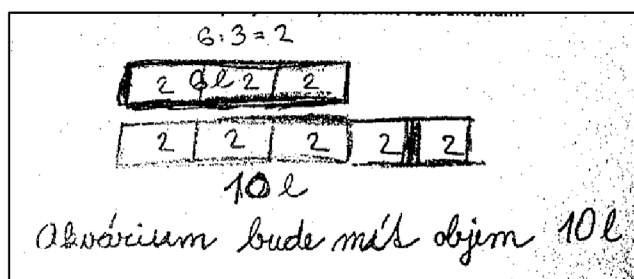 6:3=2
2 6l 2 2
2 2 2 2 2
10 l
Akvárium bude mít objem 10 l